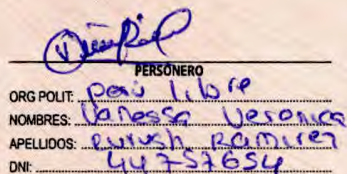 PERSONERO
ORG POLIT: Perú libre
NOMBRES: Vanessa Veronica
APELLIDOS: Ramirez
DNI: 44757654